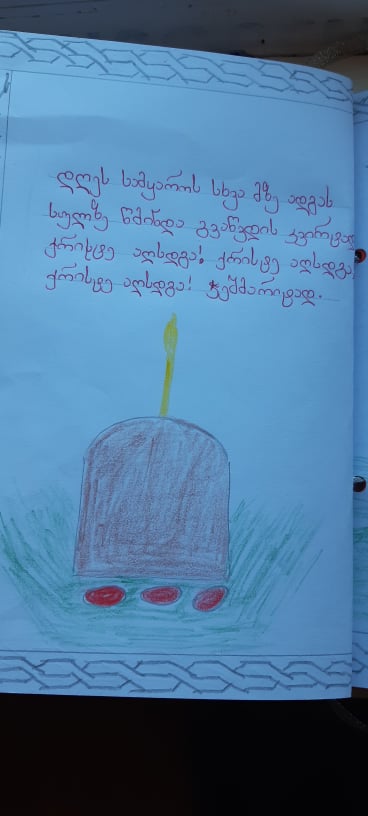 დღეს სამყაროს სხვა მზე ადგას
სულზე წმინდა გვაწვდის კვირტად
ქრისტე აღსდგა! ქრისტე აღსდგა!
ქრისტე აღსდგა! ჭეშმარიტად.